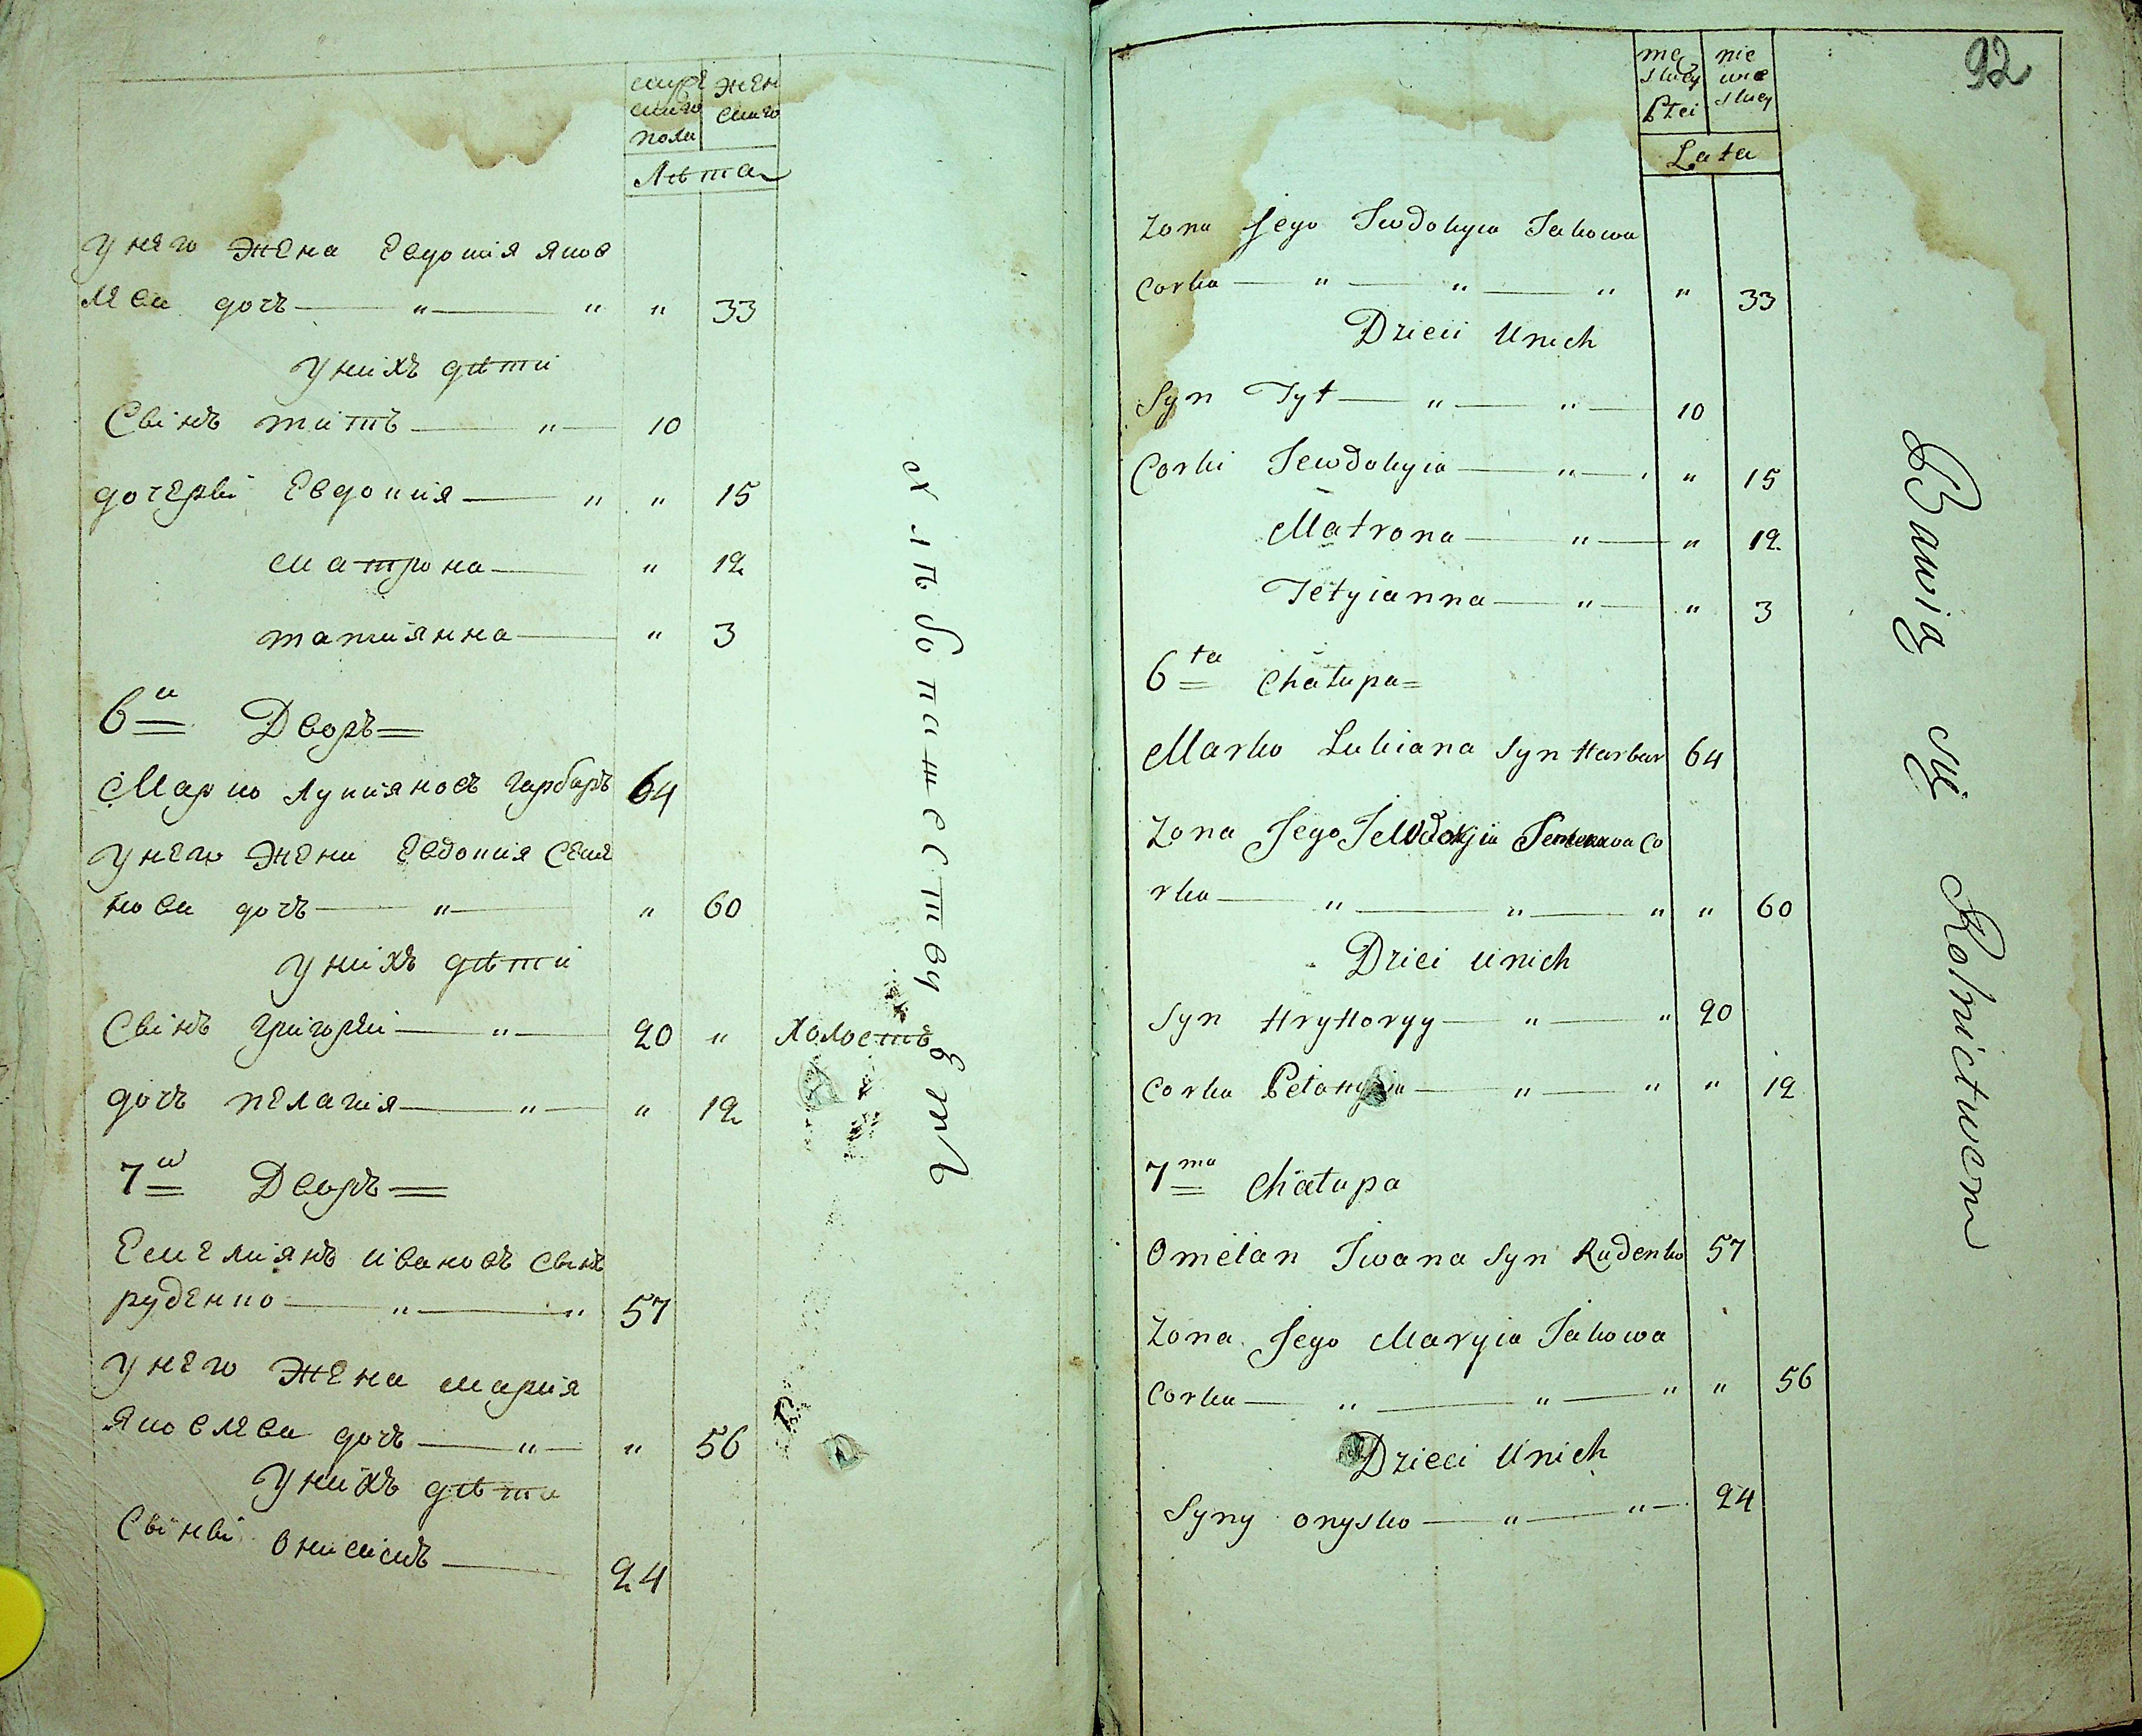 муже жен
скаго скаго
пола
Лѣта
у него жена Евдокия Яков
лева дочь — " — " " 33
у нихъ дѣти
Сынъ титъ — " — 10
дочери Евдокия — " " 15
матрона — " 12
татиянна — " 3
6й Дворъ =
Марко Лукияновъ гарбаръ 64
у него жена Евдокия Семе
нова дочь — " — " 60
у нихъ дѣти
Сынъ григорий — " — 20 " Холостъ
дочь пелагия — " — " 12
7й Дворъ =
Емелиянъ ивановъ сынъ
руденко — " — " 57
у него жена мария
яковлева дочь — " — " 56
у нихъ дѣти
Сыны онисимъ — 24
хлѣбопашествуетъ
92
męz nie
skiey wie
Płci skiey
Lata
Zona Jego Jewdokyia Jakowa
Corka — " — " — " " 33
Dzieci Unich
Syn Tyt — " — " — 10
Corki Jewdokyia — " — " 15
Matrona — " — " 12
Tetyianna — " — " 3
6ta Chałupa =
Marko Lukiana Syn Harbar 64
Zona Jego Jewdokyia Semenowa Co
rka — " — " — " " 60
Dzieci unich
Syn Hryhoryy — " — " 20
Corka Pelahyia — " — " " 12
7ma Chałupa
Omelan Iwana Syn Rudenko 57
Zona Jego Maryia Jakowa
Corka — " — " — " " 56
Dzieci Unich
Syny onysko — " — " — 24
Bawią się Rolnictwem